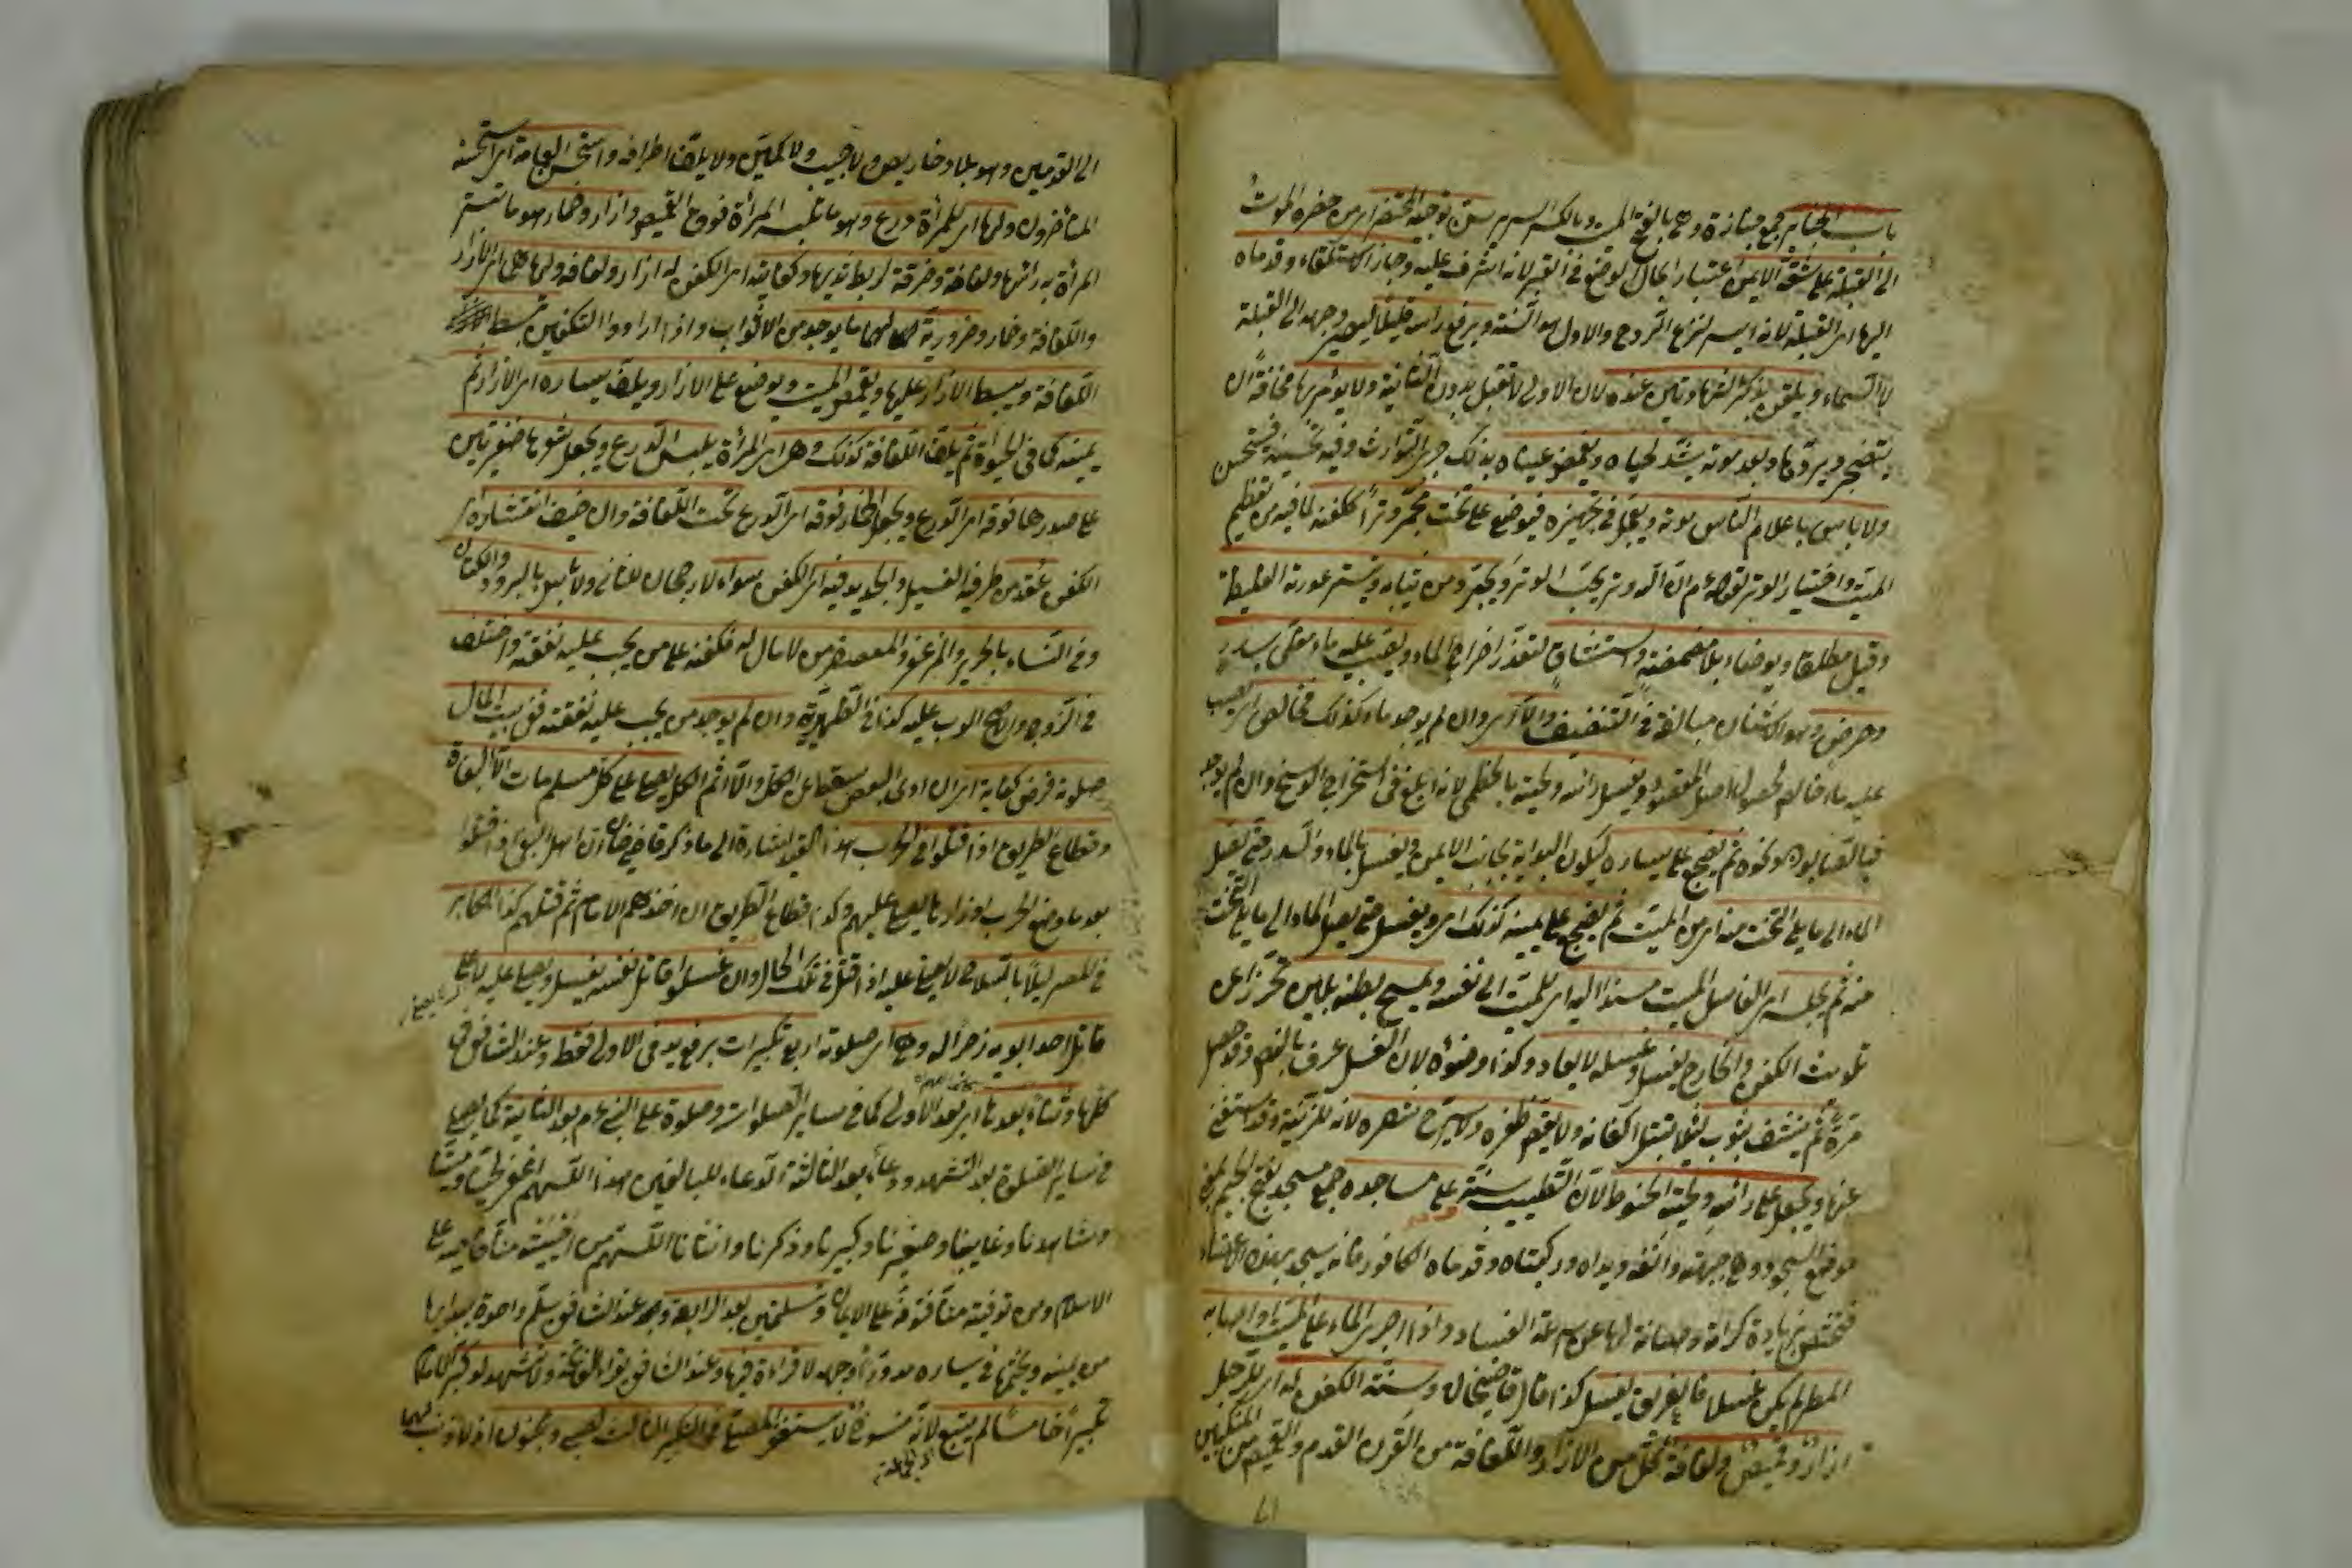 باب الجنايز جمع جنازة وهي بالفتح الميت وبالكسر السرير سن توجيه المحتضر اى من حضره الموت
الى القبلة على شقه الايمن اعتبارا بحال الوضع فى القبر لانه اشرف عليه وجاز الاستلقاء وقدماه
اليها اى القبلة لانه ايسر لنزع الروح والاول هو السنة ويرفع رأسه قليلا ليصير وجهه الى القبلة
لا السماء ويلقن بذكر الشهادتين عنده لان الاولى لا تقبل بدون الثانية ولا يؤمر بها مخافة ان
يتضجر ويردها وبعد موته يشد لحياه ويغمض عيناه بذلك جرى التوارث وفيه تحسينه فيستحسن
ولا بأس باعلام الناس بموته ويعجل فى تجهيزه فيوضع على تخت مجمر وترا ككفنه لما فيه من تعظيم
الميت واختيار الوتر لقوله عم ان الله وتر يحب الوتر ويجرد من ثيابه ويستر عورته الغليظة
وقيل مطلقا ويوضأ بلا مضمضة واستنشاق لتعذر اخراج الماء ويصب عليه ماء مغلى بسدر
وحرض وهو الاشنان مبالغة فى التنظيف والا اى وان لم يوجد ماء كذلك فخالص اى يصب
عليه ماء خالص لحصول اصل المقصود ويغسل رأسه ولحيته بالخطمى لانه ابلغ فى استخراج الوسخ وان لم يوجد
فبالصابون ونحوه ثم يضجع على يساره ليكون البداية بجانب الايمن فيغسل بالماء والسدر حتى يصل
الماء الى ما يلى التخت منه اى من الميت ثم يضجع على يمينه كذلك اى ويغسل حتى يصل الماء الى ما يلى التخت
منه ثم يجلسه اى الغاسل الميت مسندا اليه اى للميت الى نفسه ويمسح بطنه بلين تحرزا عن
تلويث الكفن والخارج يغسل وغسله لا يعاد وكذا وضوءه لان الغسل عرف بالنص وقد حصل
مرة ثم ينشف بثوب لئلا يبتل اكفانه ولا يقص ظفره ولا يسرح شعره لانه للزينة وقد استغنى
عنها ويجعل على رأسه ولحيته الحنوط لان التطييب سنة وعلى مساجده جمع مسجد بفتح الجيم بمعنى
موضع السجود وهى جبهته وانفه ويداه وركبتاه وقدماه الكافور فانه يسجد بهذه الاعضاء
فتختص بزيادة كرامة وصيانة لها عن سرعة الفساد واذا جرى الماء على الميت او اصابه
المطر لم يكن غسلا فالغريق يغسل كذا قال قاضيخان وسنة الكفن له اى للرجل
ازار وقميص ولفافة كل من الازار واللفافة من القرن القدم والقميص من المنكبين
الى القدمين وهو بلا دخاريص ولا جيب ولا كمين ولا يلف اطرافه واستحسن العمامة اى استحسنه
المتأخرون ولها اى للمرأة درع وهو ما تلبسه المرأة فوق القميص وازار وخمار وهو ما تستر
المرأة به رأسها ولفافة وخرقة لربط ثدييها وكفايته اى الكفن له ازار ولفافة ولها هما اى الازار
واللفافة وخمار وضرورية لهما ما يوجد من الاثواب واذا ارادوا التكفين تبسط
اللفافة ويبسط الازار عليها ويقمص الميت ويوضع على الازار ويلف يساره اى الازار ثم
يمينه كما فى الحيوة ثم يلف اللفافة كذلك وهى اى المرأة يلبس الدرع ويجعل شعرها ضفيرتين
على صدرها فوقه اى الدرع ويجعل الخمار فوقه اى الدرع تحت اللفافة وان خيف انتشاره اى
الكفن عقد من طرفيه الغسيل والجديد فيه اى الكفن سواء لا رجحان للثانى ولا بأس بالبرود والكتان
وفى النساء بالحرير والمزعفر والمعصفر من لا مال له فكفنه على من يجب عليه نفقته واختلف
فى الزوج والاصح الوجوب عليه كذا فى الظهيرية وان لم يوجد من يجب عليه نفقته ففى بيت المال
صلوته فرض كفاية اى ان ادى البعض سقط عن الكل والا اثم الكل يصلى على كل مسلم مات الا البغاة
وقطاع الطريق اذا قتلوا فى الحرب هذا القيد اشارة الى ما ذكر قاضيخان ان اهل البغى اذا قتلوا
بعد ما وضع الحرب اوزارها يصلى عليهم وكذا قطاع الطريق ان اخذهم الامام ثم قتلهم كذا المكابر
فى المصر ليلا بالسلاح لا يصلى عليه اذا قتل فى تلك الحال وان غسلوا قاتل نفسه يغسل ويصلى عليه لا على
قاتل احد ابويه زجرا له وهى اى صلوته اربع تكبيرات يرفع يديه فى الاولى فقط وعند الشافعى فى
كلها وثناء بعدها اى بعد الاولى كما فى سائر الصلوات وصلوة على النبى عم بعد الثانية كما يصلى
فى سائر الصلوة بعد التشهد ودعاء بعد الثالثة الدعاء للبالغين هذا اللهم اغفر لحينا وميتنا
وشاهدنا وغائبنا وصغيرنا وكبيرنا وذكرنا وانثانا اللهم من احييته منا فاحيه على
الاسلام ومن توفيته منا فتوفه على الايمان وتسليمتين بعد الرابعة وعند الشافعى يسلم واحدة يبدأ بها
من يمينه ويختمها فى يساره مدورا وجهه لا قراءة فيها وعند الشافعى يقرأ الفاتحة ولا تشهد لو كبر الامام
تكبيرا خامسا لم يتبع لانه منسوخ لا يستغفر المصلى فى التكبير الثالث لصبى ومجنون اذ لا ذنب لهما